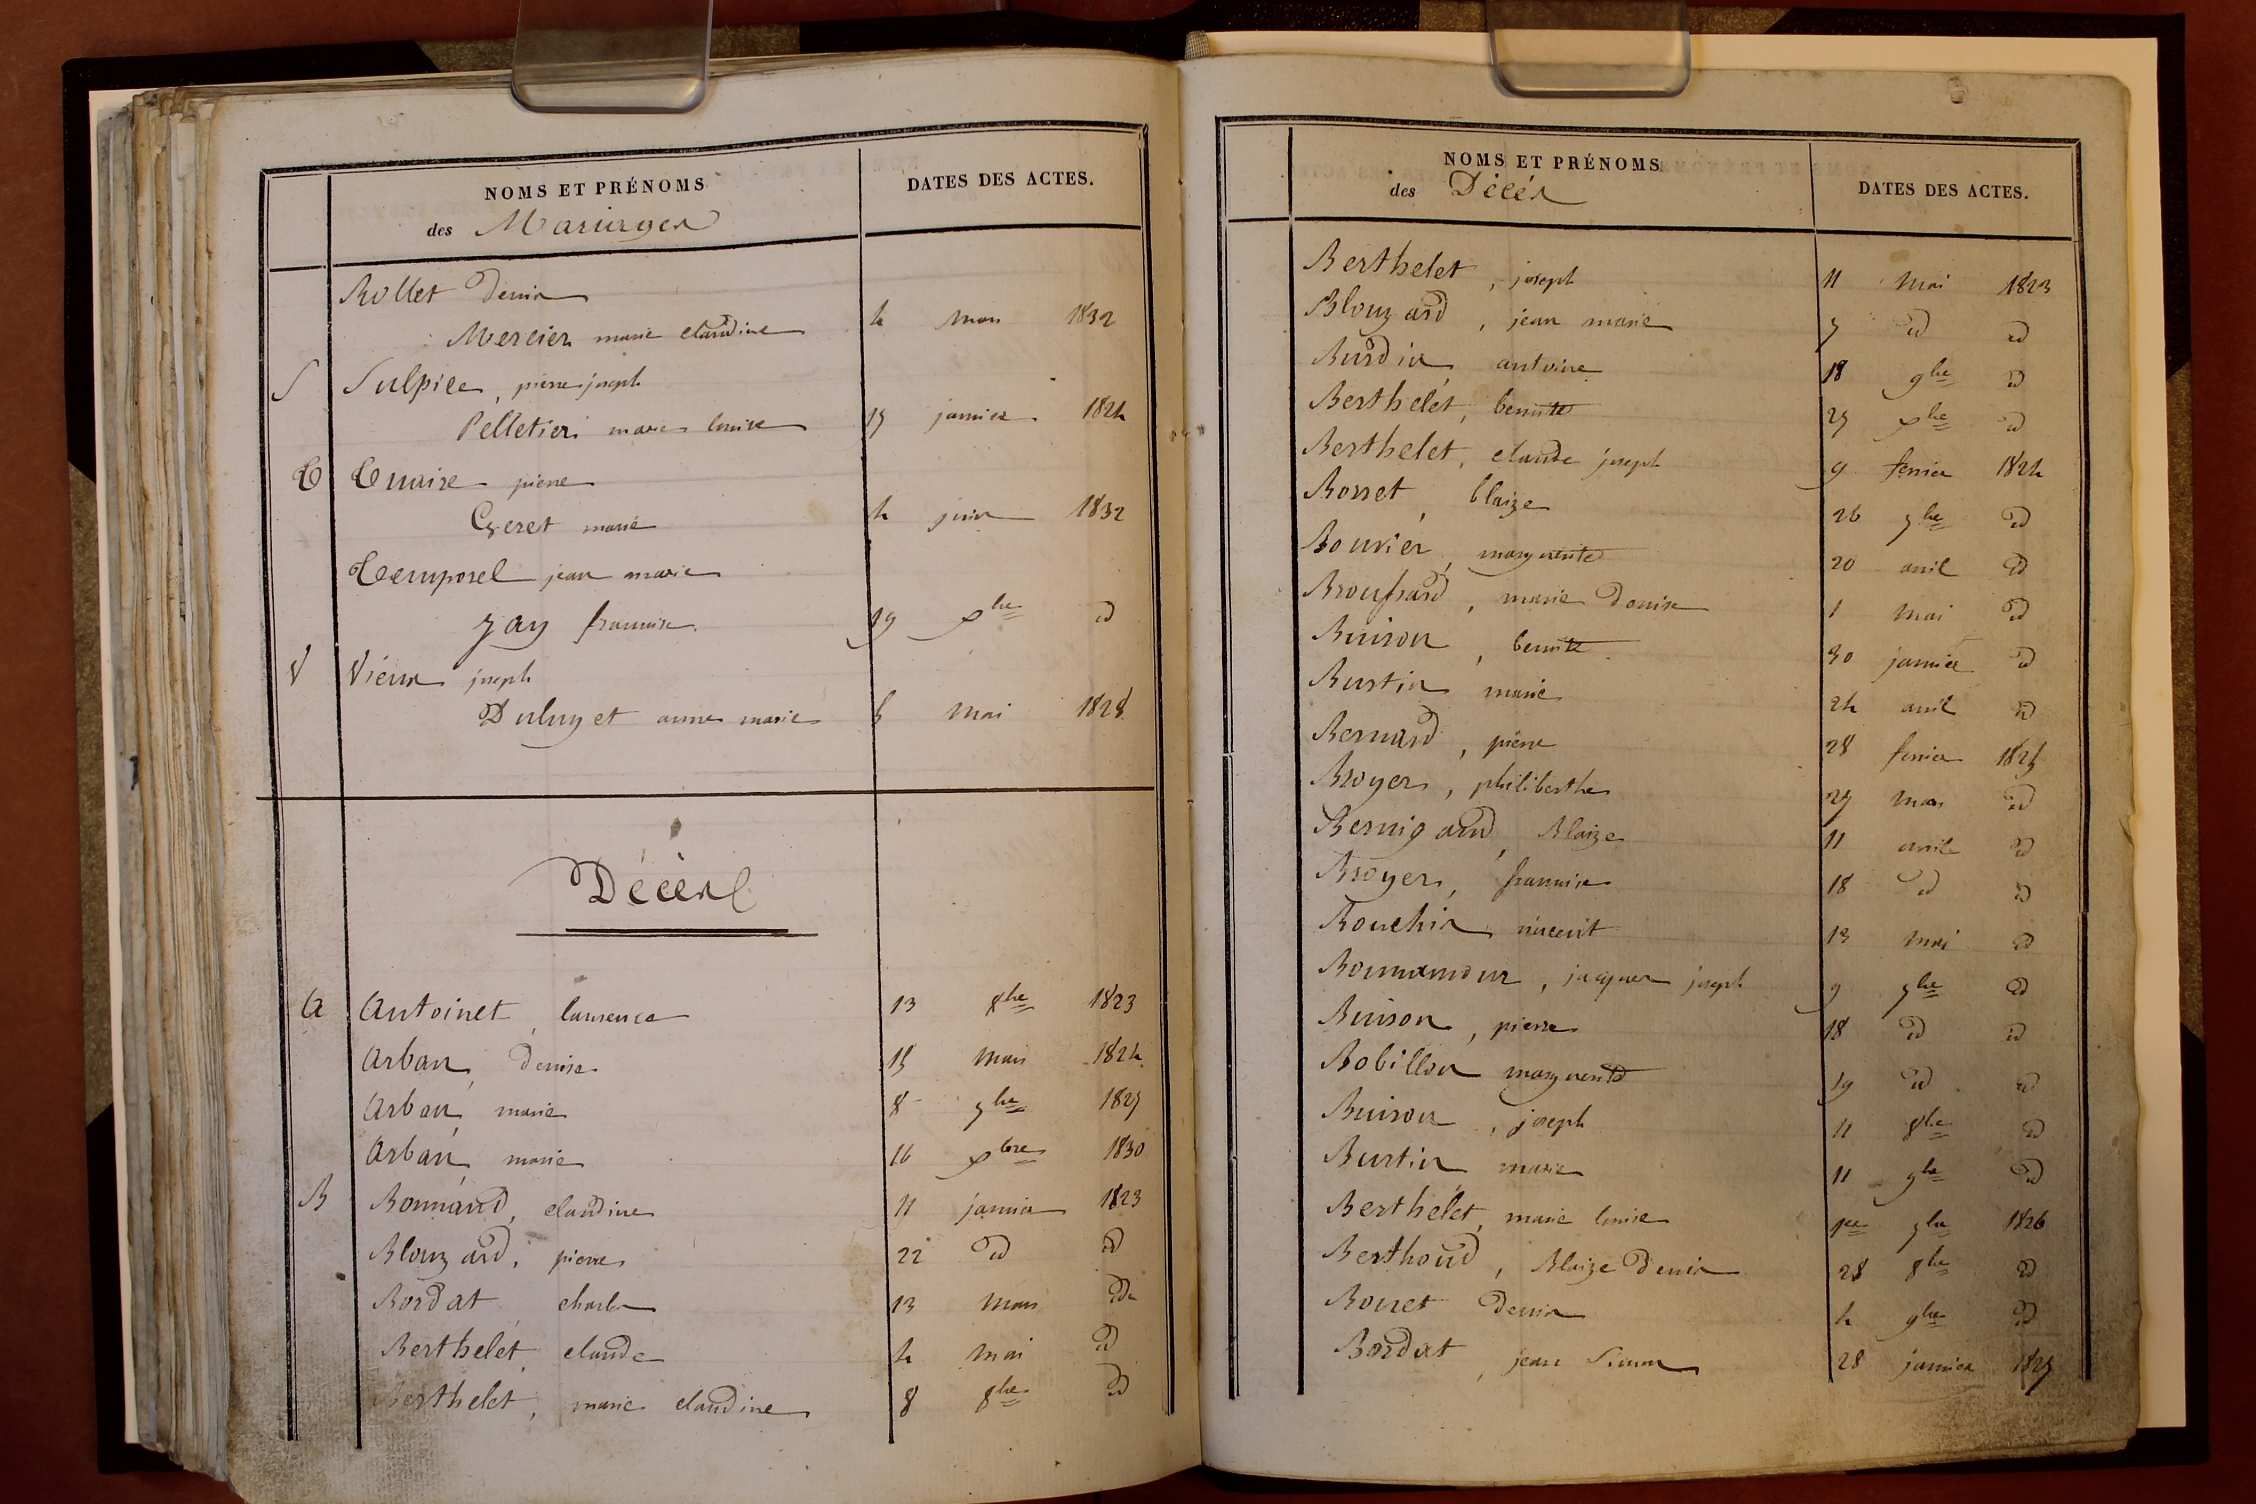 NOMS ET PRÉNOMS
DATES DES ACTES.
des Mariages
Rollet Denis
Mercier marie claudine 4 mars 1832
S Sulpice, pierre joseph
Pelletier marie louise 17 janvier 1824
T Tuaire pierre
Geret marie 4 juin 1832
Temporel jean marie
Jay francoise 19 xbre id
V Vieux joseph
Duluyet anne marie 5 mai 1828
Décès
A Antoinet, laurence 13 8bre 1823
Arban, Denise 15 mars 1824
Arban, marie 8 7bre 1827
Arban, marie 16 xbre 1830
B Bonnard, claudine 11 janvier 1823
Blouzard, pierre 22 id id
Bordat, charles 13 mars id
Berthelet, claude 4 mai id
Berthelet, marie claudine 8 8bre id
NOMS ET PRÉNOMS
DATES DES ACTES.
des Décès
Berthelet, joseph 11 mai 1823
Blouzard, jean marie 7 id id
Burdin, antoine 18 9bre id
Berthelet, benoite 27 xbre id
Berthelet, claude joseph 9 fevrier 1824
Bosset, blaize 26 7bre id
Bouvier, marguerite 20 avril id
Broussard, marie Denise 1 mai id
Buison, benoite 30 janvier id
Bustin marie 24 avril id
Bernard, pierre 28 fevrier 1825
Broyer, philiberthe 27 mars id
Bernigaud, Blaize 11 avril id
Broyer, francoise 18 id id
Bouchin, vincent 13 mai id
Bonnamour, jacques joseph 9 7bre id
Buison, pierre 18 id id
Bobillon marguerite 19 id id
Buison, joseph 11 8bre id
Bustin marie 11 9bre id
Berthelet, marie louise 1er 7bre 1826
Berthoud, Blaize Denis 28 8bre id
Bouret Denis 4 9bre id
Bordat, jean Simon 28 janvier 1827